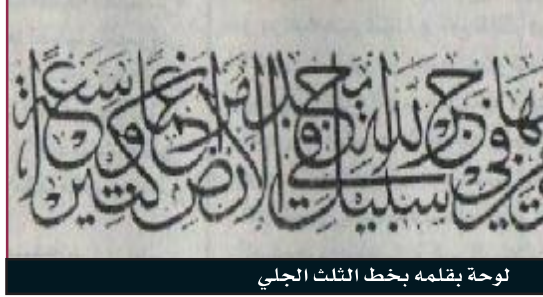 يهاجر في سبيل الله يجد في الأرض مراغما كثيرا وسعة
لوحة بقلمه بخط الثلث الجلي